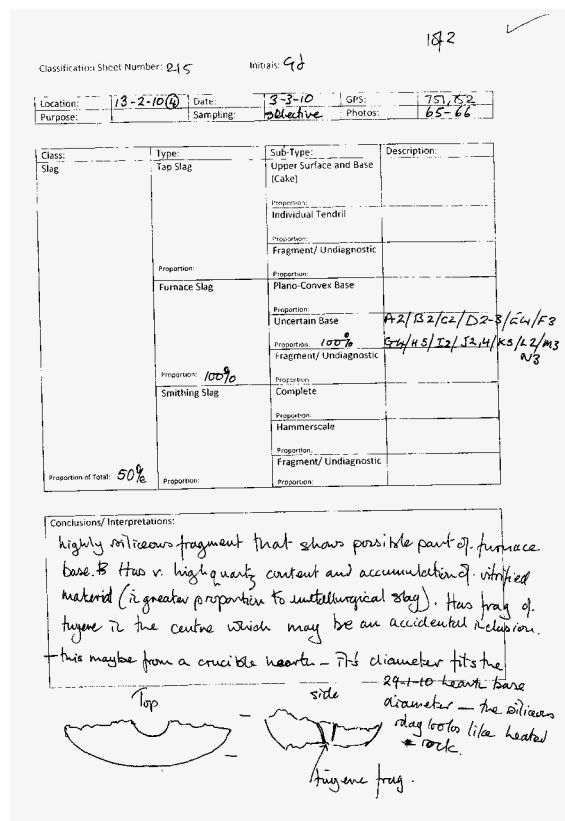 1 of 2
Classification Sheet Number: 215 Initials: GJ
Location: 13-2-10 (4) Date: 3-3-10 GPS: 751,752
Purpose: Sampling: selective Photos: 65-66
Class: Type: Sub-Type: Description:
Slag Tap Slag Upper Surface and Base
(Cake)
Proportion:
Individual Tendril
Proportion:
Fragment/ Undiagnostic
Proportion: Proportion:
Furnace Slag Plano-Convex Base
Proportion:
Uncertain Base A2/B2/C2/D2-3/E4/F3
Proportion: 100% G4/H5/I2/J2,4/K5/L2/M3
N3
Fragment/ Undiagnostic
Proportion: 100% Proportion:
Smithing Slag Complete
Proportion:
Hammerscale
Proportion:
Fragment/ Undiagnostic
Proportion of Total: 50% Proportion: Proportion:
Conclusions/ Interpretations:
highly siliceous fragment that shows possible part of furnace
base. Has v. high quartz content and accumulation of vitrified
material (in greater proportion to metallurgical slag). Has frag of
tuyere in the centre which may be an accidental inclusion.
+ this maybe from a crucible hearth - it's diameter fits the
29-1-10 hearth base
diameter - the siliceous
slag looks like heated
rock.
Top side
tuyere frag.